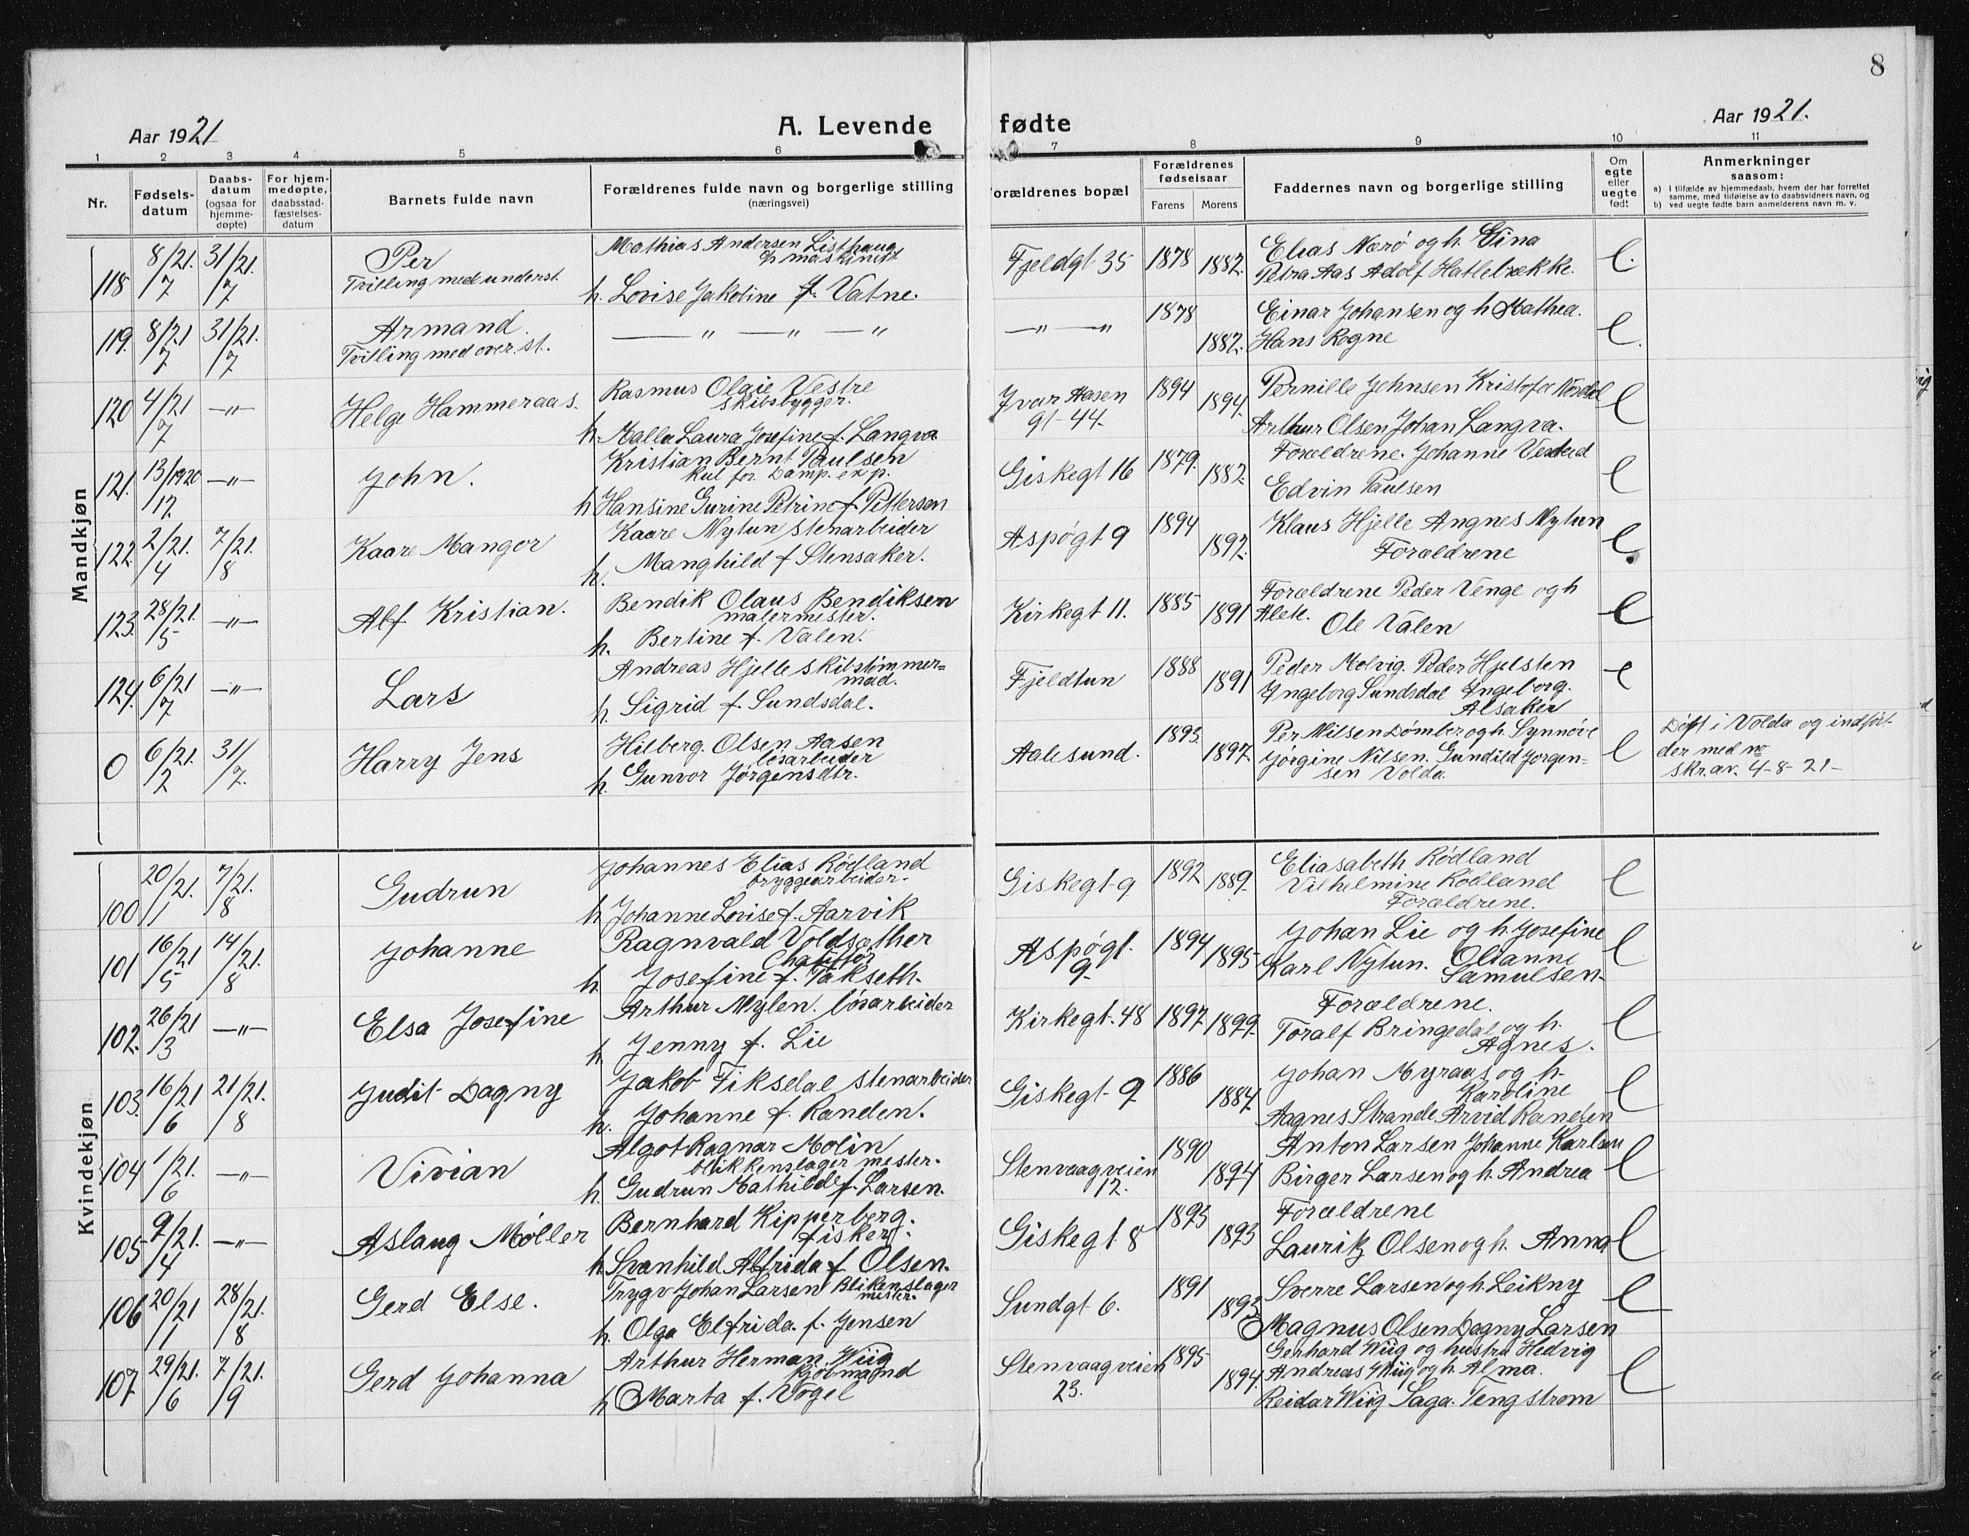 8
Aar 1921
A. Levende
fødte
Aar 1921.
1 2 3 4 5 6 7 8 9 10 11
Nr.
Fødsels-
datum
Daabs-
datum
(ogsaa for
hjemme-
døpte)
For hjem-
medøpte,
daabsstad-
fæstelses-
datum
Barnets fulde navn
Forældrenes fulde navn og borgerlige stilling
(næringsvei)
Forældrenes bopæl
Forældrenes
fødselsaar
Farens Morens
Faddernes navn og borgerlige stilling
Om
egte
eller
uegte
født
Anmerkninger
saasom:
a) i tilfælde av hjemmedaab, hvem der har forrettet
samme, med tilføielse av to daabsvidners navn, og
b) ved uegte fødte barn anmelderens navn m. v.
Mandkjøn
118 8/21. 7 31/21. 7 Per
Tvilling med underst.
Mathias Andersen Listhaug
maskinist
h. Lovise Jakoline f. Vatne.
Fjeldgt 35 1878 1882.
Elias Nærø og h. Gina
Petra Aas Adolf Hatlebrække.
e.
119. 8/21 7 31/21. 7 Armand.
Tvilling med over st.
— " — " — "
— " — "
1878 1882.
Einar Johansen og h Mathea.
Hans Rogne
e.
120 4/21 7 —"— Helge Hammeraas.
Rasmus Olaie Vestre
skibsbygger.
h. Malla Laura Josefine f. Langva
Ivar Aasen
gt- 44. 1894 1894.
Pernille Johnsen Kristofer Nørdal
Arthur Olsen Johan Langva.
e
121. 13/1920 12. —"— John.
Kristian Bernt Paulsen
kul for Damp. exp.
h Hansine Gurine Petrine f. Pettersen
Giskegt 16 1879. 1882.
Forældrene. Johanne
Edvin Paulsen
e
122. 2/21. 4 7/21. 8 Kaare Mangor
Kaare Nytun stenarbeider
h. Manghild f Stensaker.
Aspøgt 9 1894 1892.
Klaus Hjelle Angnes Nytun
Forældrene
e.
123. 28/21. 5 —"— Alf Kristian.
Bendik Olaus Bendiksen
malermester.
h. Bertine f. Valen.
Kirkegt 11. 1885 1891
Forældrene Peder Venge og h
Alete. Ole Valen
e
124. 6/21 7 —"— Lars
Andreas Hjelle skibstømmer=
mad.
h. Sigrid f. Sundsdal.
Fjeldtun 1888 1891
Peder Molvig. Peder Hjelsten
Yngeborg Sundsdal Ingeborg.
Alsaker
e
0 6/21. 2 31/ 7. Harry Jens
Hilberg. Olsen Aasen
løsarbeider
h. Gunvor Jørgensdtr.
Aalesund. 1893. 1897.
Per Nilsen Dømber og h. Synnøve
Jørgine Nilsen. Gundild Jorgen=
sen Volda.
e
Døpt i Volda og indført
der med no
skr. av. 4-8-21-
Kvindekjøn
100 20/21. 1 7/21. 8 Gudrun
Johannes Elias Rødland
bryggearbeider.
h Johanne Lovise f. Aarvik
Giskegt 9 1892 1889.
Eliasabeth Rødland
Vilhelmine Rødland
Forældrene.
e
101 16/21 5 14/21. 8 Johanne
Ragnvald Voldsæther
Chauffør
h Josefine f. Takseth.
Aspøgt.
9. 1894 1895
Johan Lie og h. Josefine
Karl Nytun. Olianne
Samulsen.
e
102. 26/21 3 —"— Elsa Josefine
Arthur Mylen. løsarbeider
h Jenny f. Lie
Kirkegt. 48 1897 1899.
Forældrene.
Toralf Bringedal og h.
Agnes.
e
103. 16/21 6 21/21. 8 Judit Dagny
Jakob Fiksdal stenarbeider
h. Johanne f. Randen.
Giskegt 9 1886 1884.
Johan Myraas og h-
Karoline
Aagnes Strande Arvid Randen
e
104 1/21. 6 —"— Vivian
Algot Ragnar Molin
blikkenslager mester.
h. Gudrun Mathilde f. Larsen.
Stenvaagveien
12. 1890 1894
Anton Larsen Johanne Karlsen
Birger Larsen og h. Andrea
e
105 9/21. 4 —"— Aslaug Møller
Bernhard Kipperberg.
fisker.
h Svanhild Alfrida f Olsen.
Giskegt 8 1893 1893
Forældrene
Lauritz Olsen og h. Anna
e
106 20/21 1 28/21. 8 Gerd Else.
Trygv Johan Larsen Blikenslager
mester.
h. Olga Elfrida. f. Jensen
Sundgt 6. 1891 1893
Sverre Larsen og h. Leikny
Magnus Olsen Dagny Larsen
e
107. 29/21. 6 7/21. 9 Gerd Johanna
Arthur Herman Wiig
kjøbmand
h Marta f. Vogel
Stenvaagveien
23. 1895 1894.
Gerhard Wiig og hustru Hedvig
Andreas Wiig og h. Alma.
Reidar Wiig Saga. Tengstrøm
e